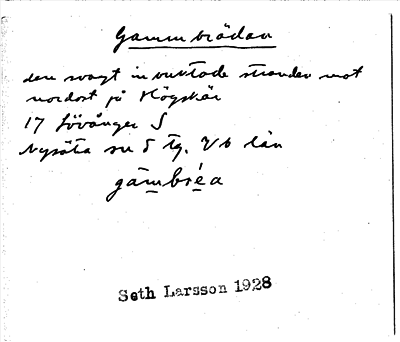 Gammbrädan
den svagt inbuktade stranden mot
nordost på Högskär
17 Lövånger S
Nysätra sn S tg. Vb län
gāmbréa
Seth Larsson 1928